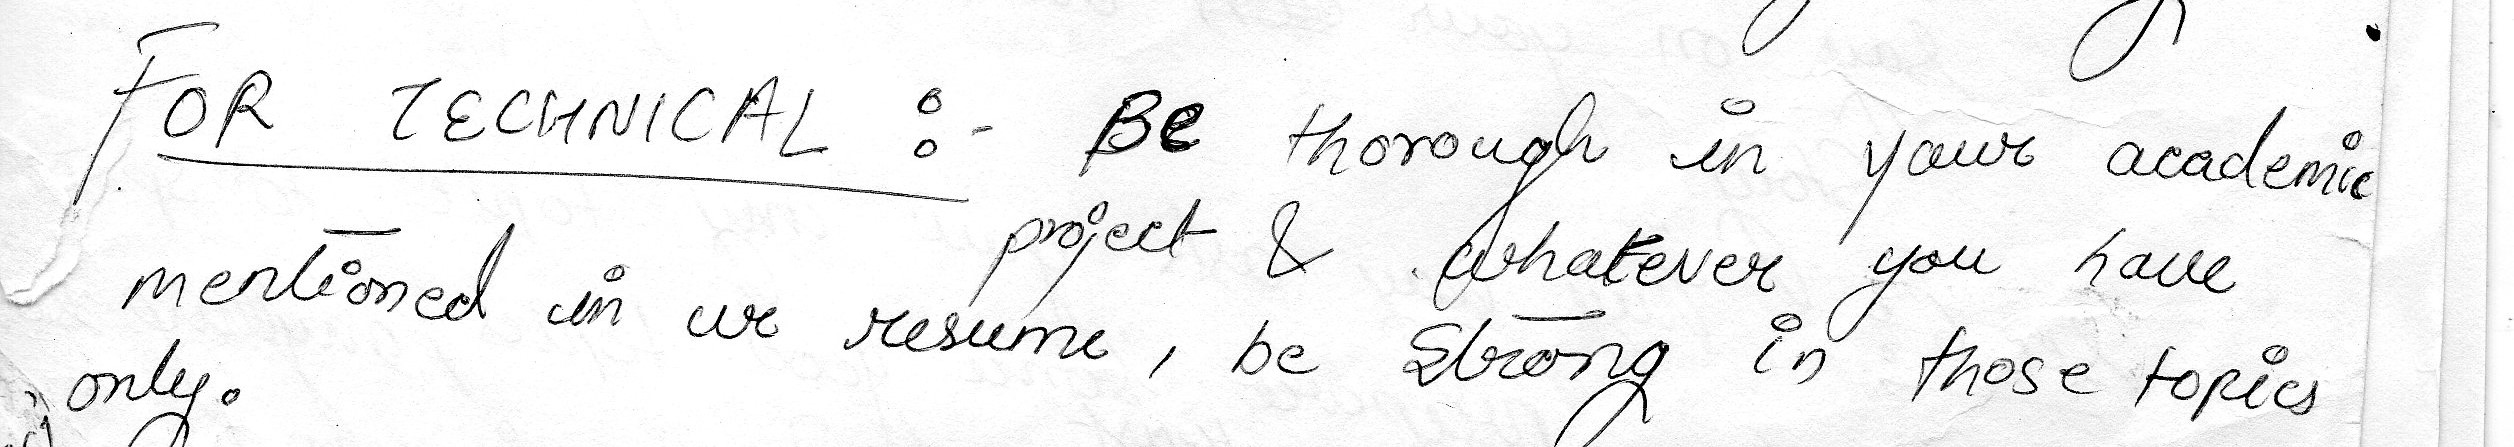 FOR TECHNICAL :- Be thorough in your academic
project & whatever you have
mentioned in ur resume, be strong in those topics
only.